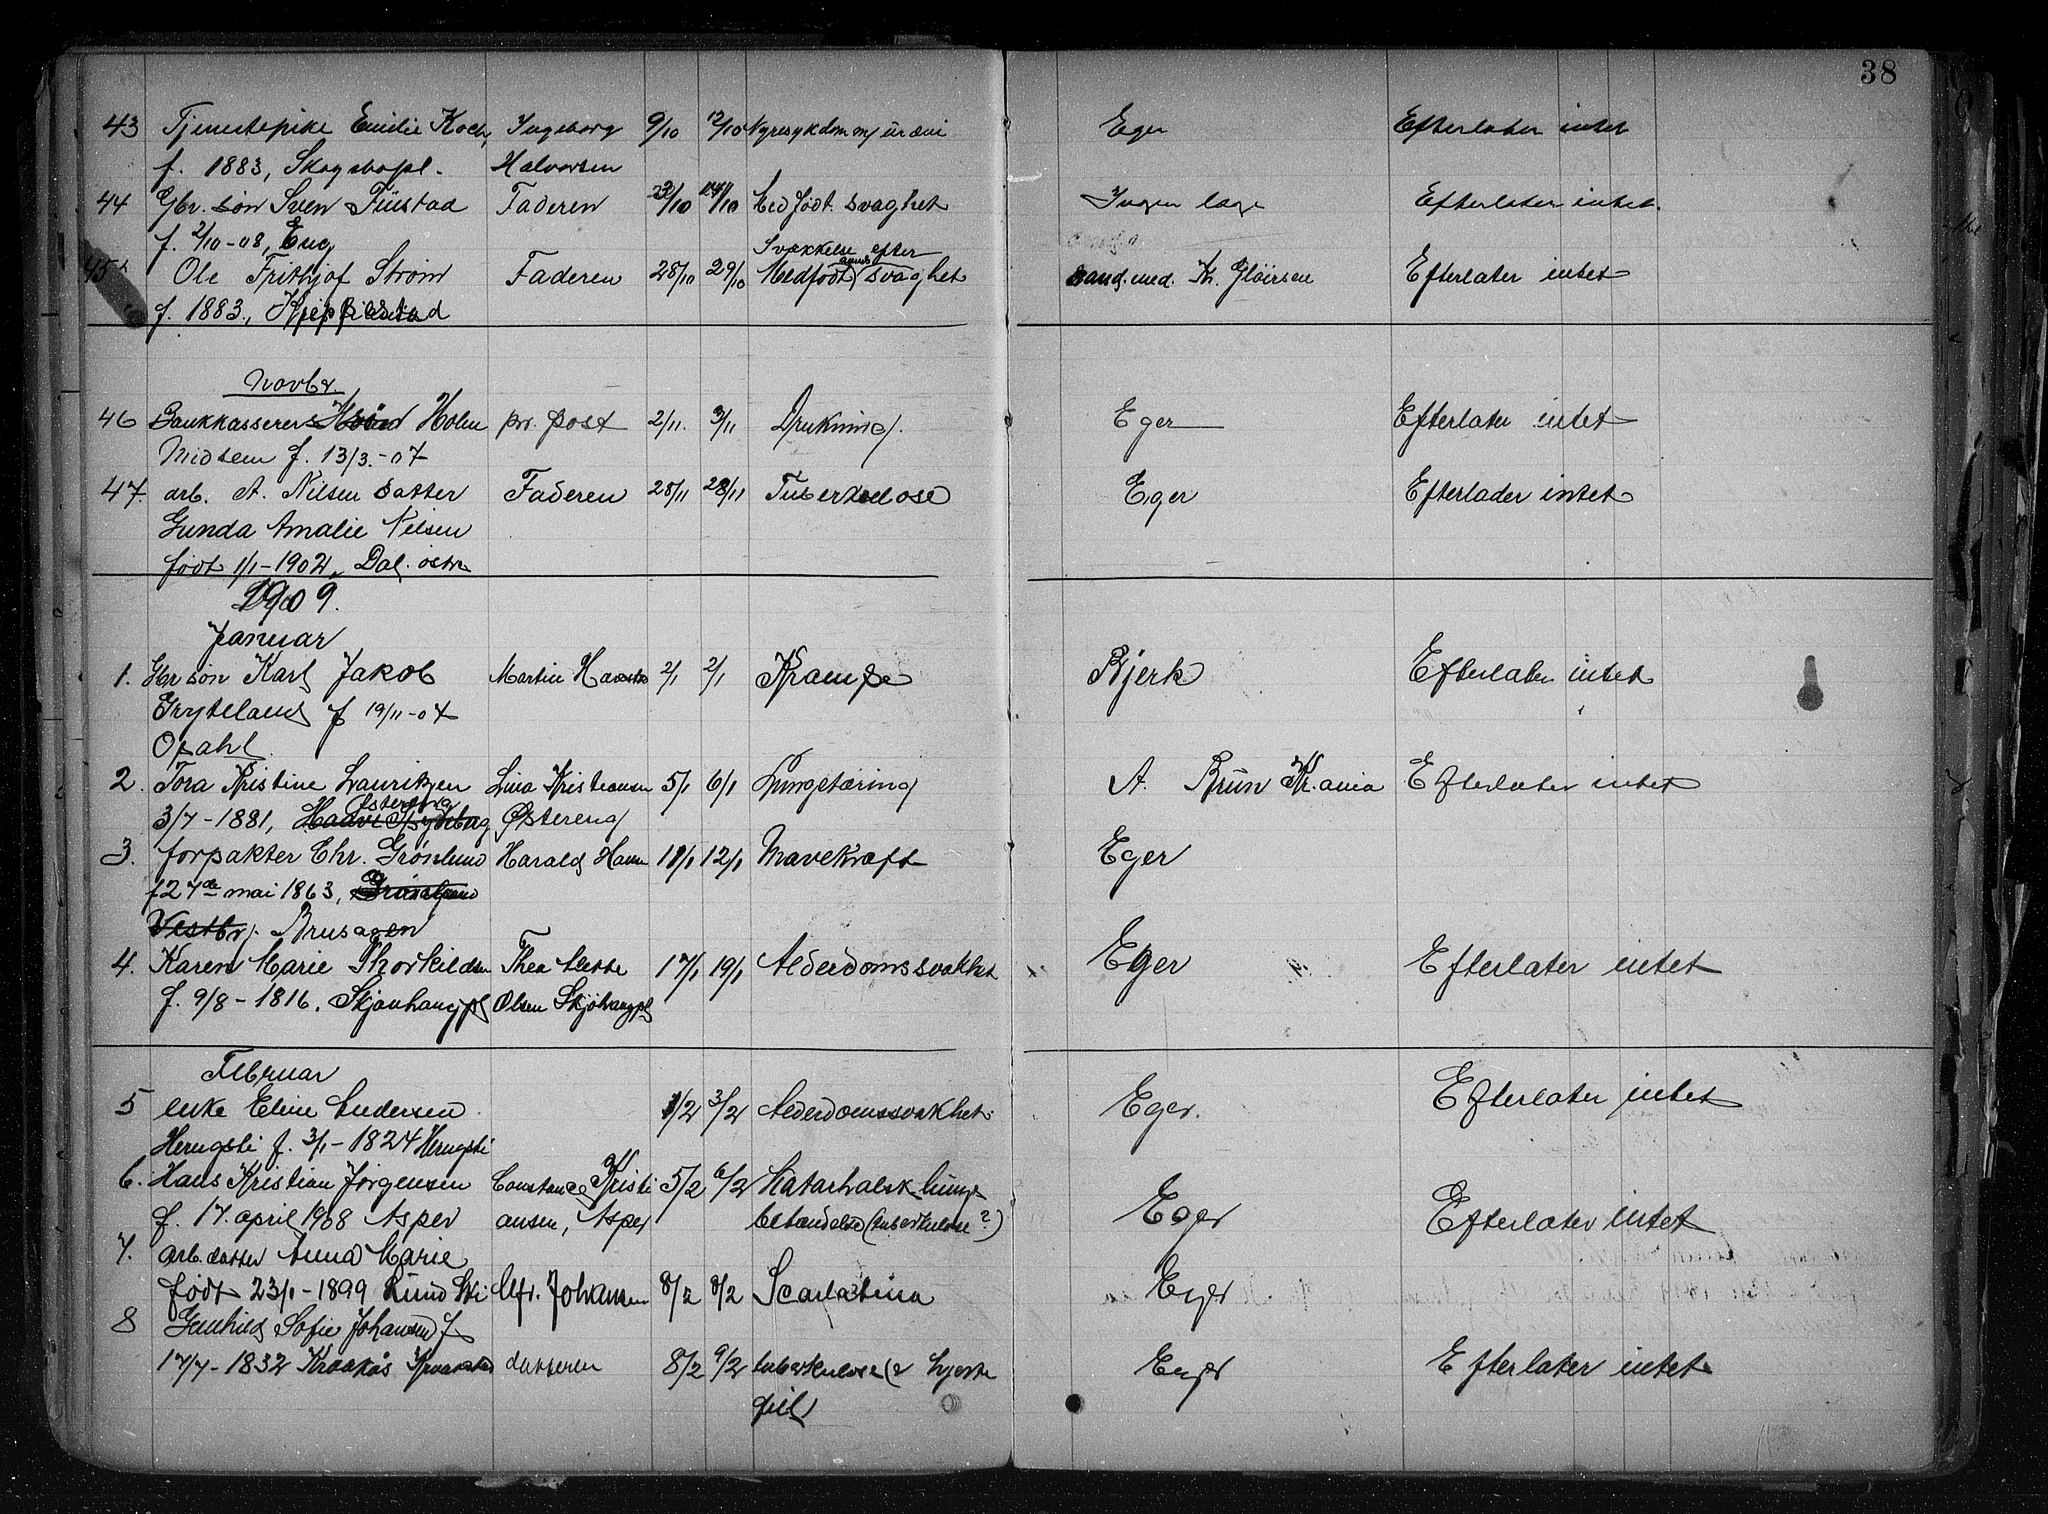 38
43 Tjenestepike Emilie Koch, Ingeborg 9/10 12/10 Nyresykdom m/ uræmi Eger Efterlater intet
f. 1883, Skogsbopl. Halvorsen
44 Gbr. søn Sven Fűstad Faderen 23/10 24/10 Medfødt svaghet Ingen læge Efterlater intet.
f. 2/10-08, Eng
Svækkelse efter
45 Ole Frithjof Strøm Faderen 28/10 29/10 Medfødt svaghet cand. med. Kr. Efterlater intet
f. 1883,
Novbr.
46 Bankkasserer Holm pr. post 2/11. 3/11 Drukning. Eger Efterlater intet
Midsem f. 13/3.-07
47. arb. A. Nilsen datter Faderen 28/11 28/11 Tuberkulose Eger Efterlader intet
Gunda Amalie Nilsen
født 1/1-1902, Dal. østre
1909.
Januar
1. Gbr søn Karl Jakob Martin 2/1 2/1 Krampe Bjerk Efterlater intet
Grytland f 19/11-07
Opahl.
2. Tora Kristine Lauritzen Lina Kristiansen 5/1 6/1 Lungetæring A. Brun Kr.ania Efterlater intet
3/7-1881, Østereng
3. forpakter Chr. Grønlund Harald 11/1 12/1 Mavekræft Eger
f 27de mai 1863,
Vestby. Brusagen
4. Karen Marie Thorkildsen Thea Mette 17/1 19/1 Alderdomssvakhet Eger Efterlater intet
f. 9/8-1816. Skjønhaugpl Olsen Skjøhaugpl
Februar
5 enke Eline Andersen 1/2 3/2 Alderdomssvakhet. Eger. Efterlater intet
Herugsti f. 3/1-1824 Herugsti
6. Hans Kristian Jørgensen Constance Kristi 5/2 6/2 Katarhalsk lunge Eger Efterlater intet
f. 17. april 1908 Asper ansen, Asper betændelse (tuberkulose?)
7. arb. datter Anna Marie
født 23/1-1899 Lund Alfr. Johansen 8/2 8/2 Scarlatina Eger
8 Gunhild Sofie Johansen f
17/7-1832 Kraakås datteren 8/2 9/2 tuberkulose (& hjerte Eger Efterlater intet
feil)